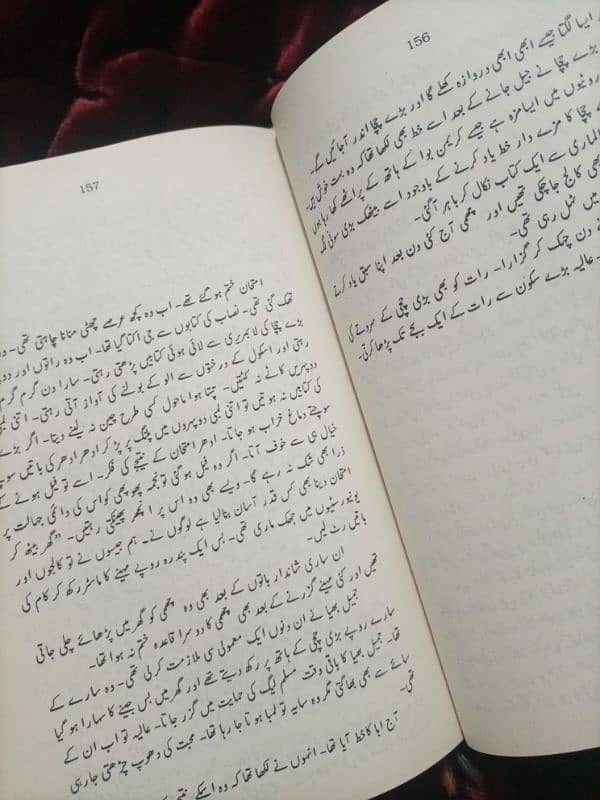 156
ایسا لگتا جیسے ابھی ابھی دروازہ کھلے گا اور بڑے چچا اندر آ جائیں گے۔
بڑے چچا نے جیل جانے کے بعد اسے خط بھی لکھا تھا کہ وہ بہت خوش ہیں۔
روٹیوں میں ایسا مزہ ہے جیسے کریمن بوا کے ہاتھ کے پراٹھے کھا رہا ہوں
چچا کا مزے دار خط یاد کرنے کے باوجود اسے بیٹھک بڑی سونی لگ
الماری سے ایک کتاب نکال کر باہر آ گئی۔
بھی کالج جا چکی تھیں اور چھمی آج کئی دن بعد اپنا سبق یاد کرنے
میں ٹہل رہی تھی۔
نے دن چمک کر گزارا۔ رات کو بھی بڑی چچی کے سروتے کی
عالیہ بڑے سکون سے رات کے ایک بجے تک پڑھا کرتی۔
157
امتحان ختم ہو گئے تھے۔ اب وہ کچھ عرصے چھٹی منانا چاہتی تھی۔ وہ
تھک گئی تھی۔ نصاب کی کتابوں سے جی اکتا گیا تھا۔ اب وہ راتوں اور دو
بڑے چچا کی لائبریری سے لائی ہوئی کتابیں پڑھتی رہتی۔ سارا دن گرم گرم
رہتی اور اسکول کے درختوں سے الو کے بولنے کی آواز آتی رہتی۔ اتنی لمبی
دوپہریں کاٹے نہ کٹتیں۔ تپتا ہوا ماحول کسی طرح چین نہ لینے دیتا۔ اگر بڑے
کی کتابیں نہ ہوتیں تو اتنی لمبی دوپہروں میں پلنگ پر پڑ کر ادھر ادھر کی باتیں سوچ
سوچتے دماغ خراب ہو جاتا۔ ادھر امتحان کے نتیجے کی فکر۔ اسے تو فیل ہونے کے
خیال ہی سے خوف آتا۔ اگر وہ فیل ہو گئی تو نجمہ پھوپھی کو اس کی دائمی جہالت پر
ذرا بھی شک نہ رہے گا۔ ویسے بھی وہ اس پر اچھر پھینکتی رہتیں۔ "گھر بیٹھ کر
امتحان دینا بھی کس قدر آسان بنا لیا ہے لوگوں نے۔ ہم جیسوں نے تو کالجوں اور
یونیورسٹیوں میں جھک ماری تھی۔ بس ایک پندرہ روپے مہینے کا ماسٹر رکھ کر کام کی
باتیں رٹ لیں۔
ان ساری شاندار باتوں کے بعد بھی وہ چھمی کو گھر میں پڑھائے چلی جاتی
تھیں اور کئی مہینے گزرنے کے بعد بھی چھمی کا دوسرا قاعدہ ختم نہ ہوا تھا۔
جمیل بھیا نے ان دنوں ایک معمولی سی ملازمت کر لی تھی۔ وہ سارے کے
سارے روپے بڑی چچی کے ہاتھ پر رکھ دیتے تھے اور گھر میں بس جینے کا سہارا ہو گیا
تھا۔ جمیل بھیا کا باقی وقت مسلم لیگ کی حمایت میں گزر جاتا۔ عالیہ تو اب ان کے
سائے سے بھی بھاگتی مگر وہ سایہ تو لمبا ہوتا جا رہا تھا۔ محبت کی دھوپ چڑھتی جا رہی
تھی۔
آج ابا کا خط آیا تھا۔ انہوں نے لکھا تھا کہ وہ اسکے